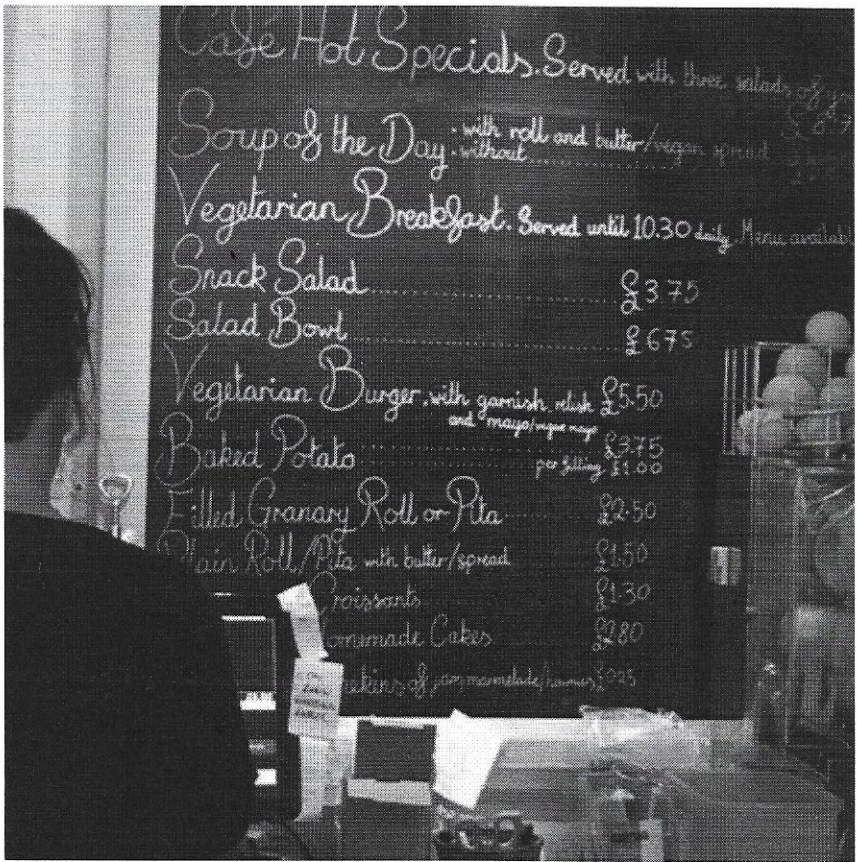 Café Hot Specials. Served with three salads of
Soup of the Day · with roll and butter/vegan spread
· without
Vegetarian Breakfast. Served until 10.30 daily. Menu
Snack Salad £3.75
Salad Bowl £6.75
Vegetarian Burger. with garnish, relish £5.50
and mayo/vegan mayo
Baked Potato £3.75
per filling £1.00
Filled Granary Roll or Pita £2.50
Plain Roll/Pita with butter/spread £1.50
Croissants £1.30
Homemade Cakes £2.80
of jam marmelade £0.25